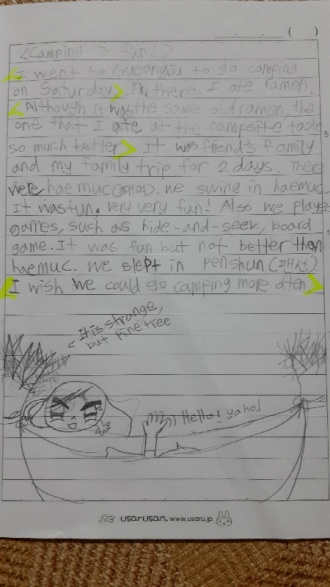 ( )
<Camping is fun!>
I went to Gyeongju to go camping
on Saturday. In there, I ate ramen.
Although it was the same old ramen, the
one that I ate at the campsite taste
so much better. It was friend's family
and my family trip for 2 days. There
were haemuc(해먹). we swing in haemuc
It was fun, very very fun! Also we played
games, such as hide-and-seek, board
game. It was fun but not better than
haemuc. We slept in penshun(펜션)
I wish we could go camping more often.
It is strange,
but pine tree
Hello! yaho!
usarusan. www.usaru.jp